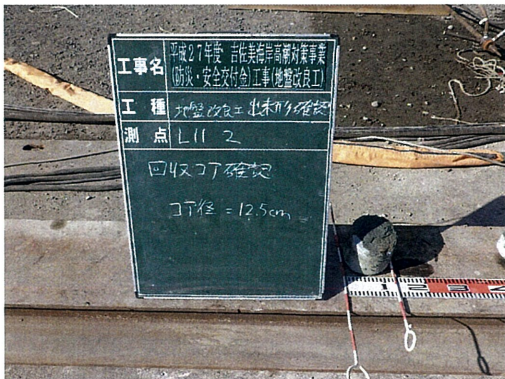 工事名
平成27年度 吉佐美海岸高潮対策事業
(防災・安全交付金)工事(地盤改良工)
工種 地盤改良工 出来形確認
測点 L11 2
回収コア確認
コア径 = 12.5cm
1 2 3